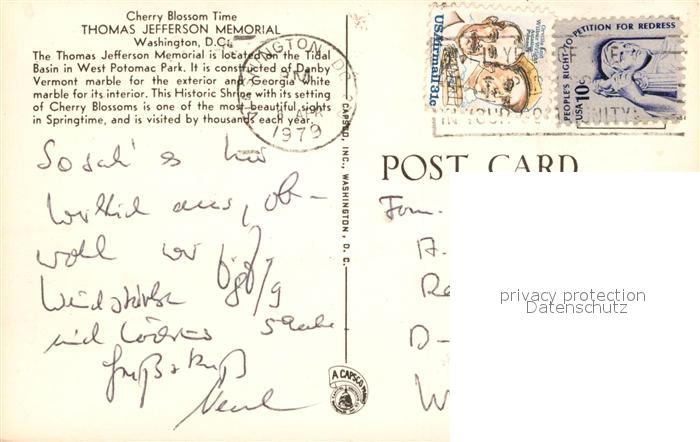 Cherry Blossom Time
THOMAS JEFFERSON MEMORIAL
Washington, D.C.
The Thomas Jefferson Memorial is located on the Tidal
Basin in West Potomac Park. It is constructed of Danby
Vermont marble for the exterior and Georgia White
marble for its interior. This Historic Shrine with its setting
of Cherry Blossoms is one of the most beautiful sights
in Springtime, and is visited by thousands each year.
WASHINGTON, DC
PM
APR
1979
US Airmail 31c
PEOPLE'S RIGHT TO PETITION FOR REDRESS
USA 10c
IN YOUR COMMUNITY
CAPSCO, INC., WASHINGTON, D. C.
POST CARD
So sah es hier
wirklich aus, ob-
wohl wir
und
Gruß + Kuß
A.
D-
W
privacy protection
Datenschutz
A CAPSCO